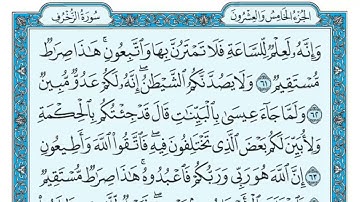 الجزء الخامس والعشرون سورة الزخرف
وَإِنَّهُۥ لَعِلۡمٞ لِّلسَّاعَةِ فَلَا تَمۡتَرُنَّ بِهَا وَٱتَّبِعُونِۚ هَٰذَا صِرَٰطٞ
مُّسۡتَقِيمٞ ٦١ وَلَا يَصُدَّنَّكُمُ ٱلشَّيۡطَٰنُۖ إِنَّهُۥ لَكُمۡ عَدُوّٞ مُّبِينٞ
٦٢ وَلَمَّا جَآءَ عِيسَىٰ بِٱلۡبَيِّنَٰتِ قَالَ قَدۡ جِئۡتُكُم بِٱلۡحِكۡمَةِ
وَلِأُبَيِّنَ لَكُم بَعۡضَ ٱلَّذِي تَخۡتَلِفُونَ فِيهِۖ فَٱتَّقُواْ ٱللَّهَ وَأَطِيعُونِ
٦٣ إِنَّ ٱللَّهَ هُوَ رَبِّي وَرَبُّكُمۡ فَٱعۡبُدُوهُۚ هَٰذَا صِرَٰطٞ مُّسۡتَقِيمٞ